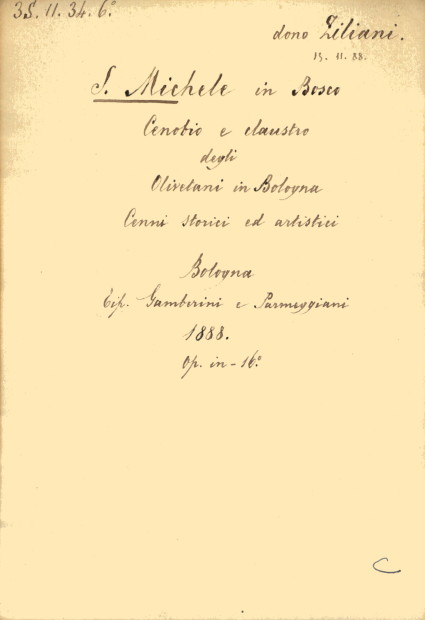 35. 11. 34. 6°
dono Ziliani.
15. 11. 88.
S. Michele in Bosco
Cenobio e claustro
degli
Olivetani in Bologna
Cenni storici ed artistici
Bologna
Tip. Gamberini e Parmeggiani
1888.
Op. in-16°.
C